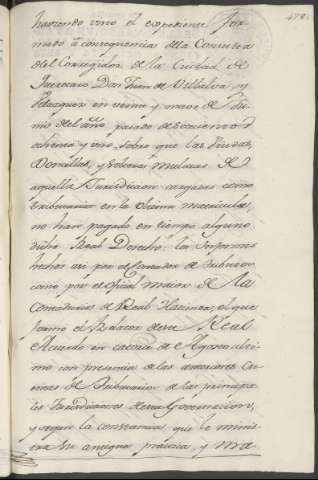 478.
haviendo visto el expediente for-
mado à consequencia de la Consulta
del Corregidor de la Ciudad de
Queretaro Don Juan de Villalva, y
Velazquez en veinte y nueve de Ju-
nio del año pasado de setecientos
ochenta y uno, sobre que las Viudas,
Doncellas, y Solteras mulatas de
aquella Jurisdiccion cargadas como
tributarias en la ultima matricula,
no han pagado en tiempo alguno
dicho Real Derecho: los Informes
hechos asi por el Contador de tributos
como por el Oficial maior de la
Contaduria de Real Hacienda, el que
formó el Relator de este Real
Acuerdo en catorce de Agosto ulti-
mo con presencia de las anteriores
de Tributarios de las principa-
les Jurisdicciones de esta Governacion,
y segun la constancia que le minis-
tra su antigua practica, y ma-